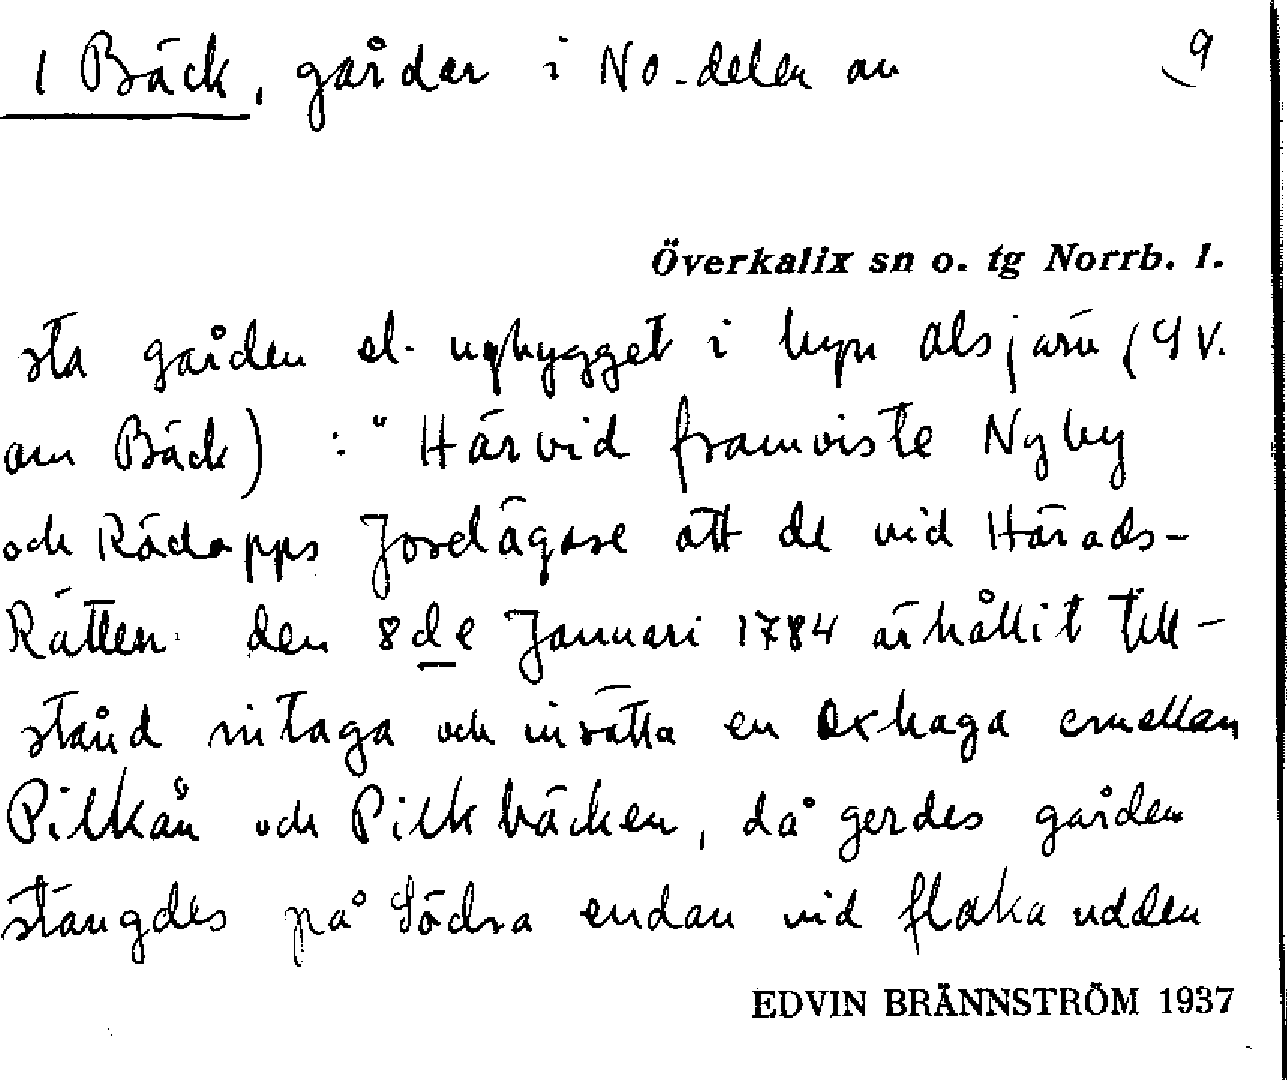 1 Bäck, gårdar i No-delen av 9
Överkalix sn o. tg Norrb. l.
sta gården el. nybygget i byn Alsjärv (9 v.
om Bäck) : "Härvid framviste Nyby
och Rödupps Jordägare att de vid Härads-
Rätten den 8de Januari 1784 ärhållit till-
stånd intaga och insätta en Oxhaga emellan
Pilkån och Pilkbäcken, då gerdes gården
stängdes på Södra endan vid flaka udden
EDVIN BRÄNNSTRÖM 1937